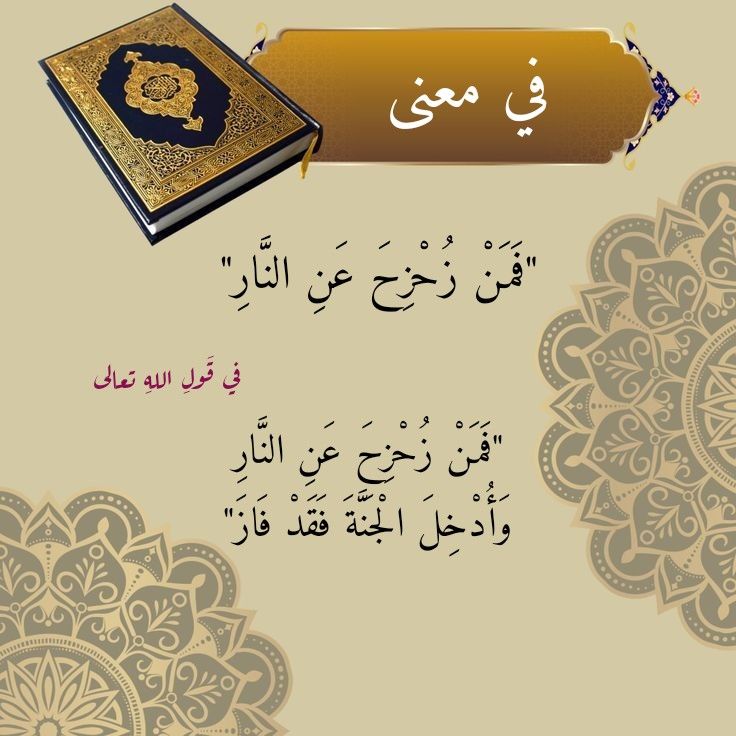 في معنى
"فَمَنْ زُحْزِحَ عَنِ النَّارِ"
في قَولِ اللهِ تعالى
"فَمَنْ زُحْزِحَ عَنِ النَّارِ
وَأُدْخِلَ الْجَنَّةَ فَقَدْ فَازَ"